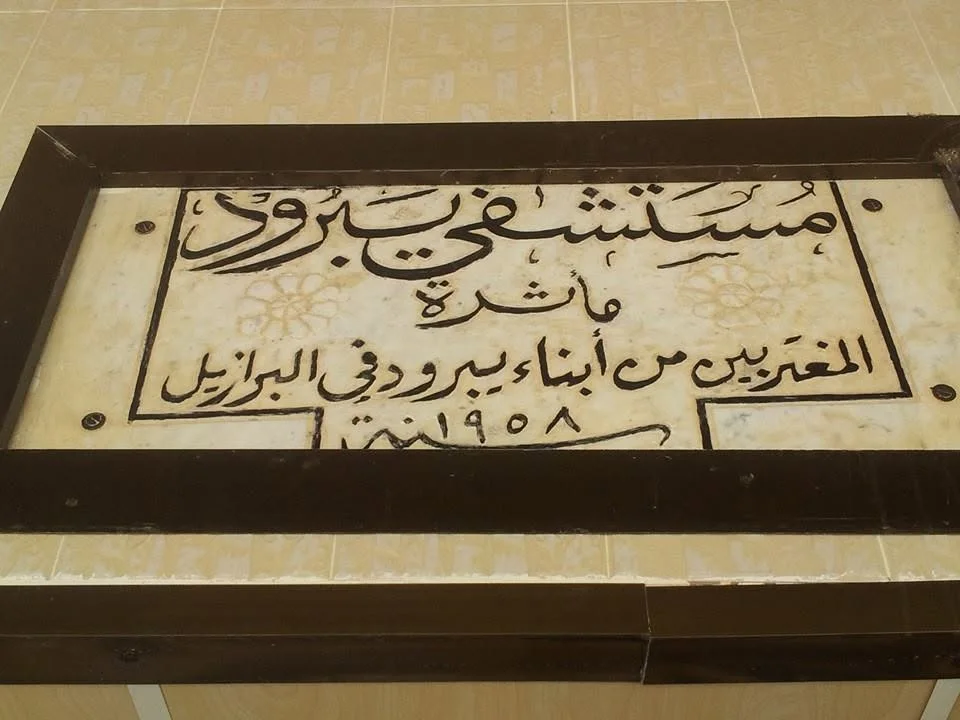 مُسْتَشفى يَبرُود
مأثرة
المغتَربين من أبناء يبرود في البرازيل
سنة ١٩٥٨